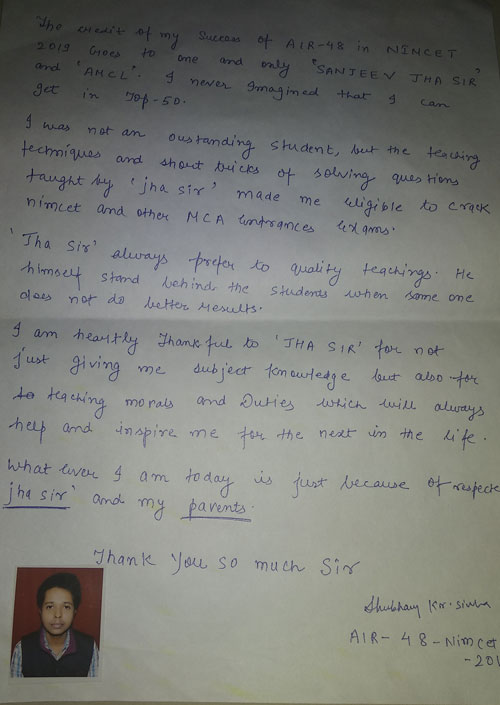 The credit of my success of AIR-48 in NIMCET
2019 Goes to one and only "SANJEEV JHA SIR"
and 'AMCL'. I never Imagined that I can
get in Top-50.
I was not an oustanding student, but the teaching
techniques and short tricks of solving questions
taught by 'jha sir' made me eligible to crack
nimcet and other MCA Entrances Exams.
'Jha Sir' always prefer to quality teachings. He
himself stand behind the students when some one
does not do better results.
I am heartly Thankful to 'JHA SIR' for not
just giving me subject knowledge but also for
to teaching morals and Duties which will always
help and inspire me for the next in the life.
What ever I am today is just because of respecte
jha sir' and my parents.
Thank You so much Sir
Shubhay Kr. Sinha
AIR-48-Nimcet
-201